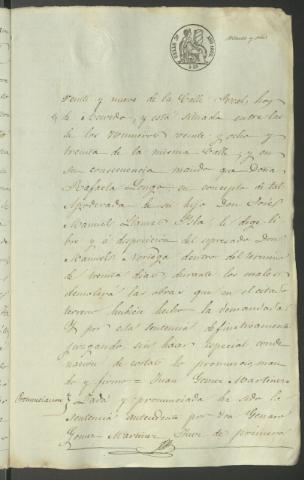 veinte y nueve de la Calle Real, hoy
de Acevedo, y está situada entre las
de los números veinte y ocho y
treinta de la misma Calle, y en
su consecuencia mando que Doña
Rafaela Longo en concepto de tal
Apoderada de su hijo Don José
Manuel Llamas Isla, le deje li
bre y á disposición del espresado Don
Manuel Noriega dentro del termino
de treinta dias durante los cuales
demolerá las obras que en el citado
terreno hubiere hecho la demandada
Y por esta sentencia definitivamente
juzgando, sin hacer especial conde
nacion de costas lo pronuncio, man
do y firmo = Juan Gomez Martinez
Pronunciacion Dada y pronunciada ha sido la
Sentencia antecedente por don Genaro
Gomez Martinez Juez de primera